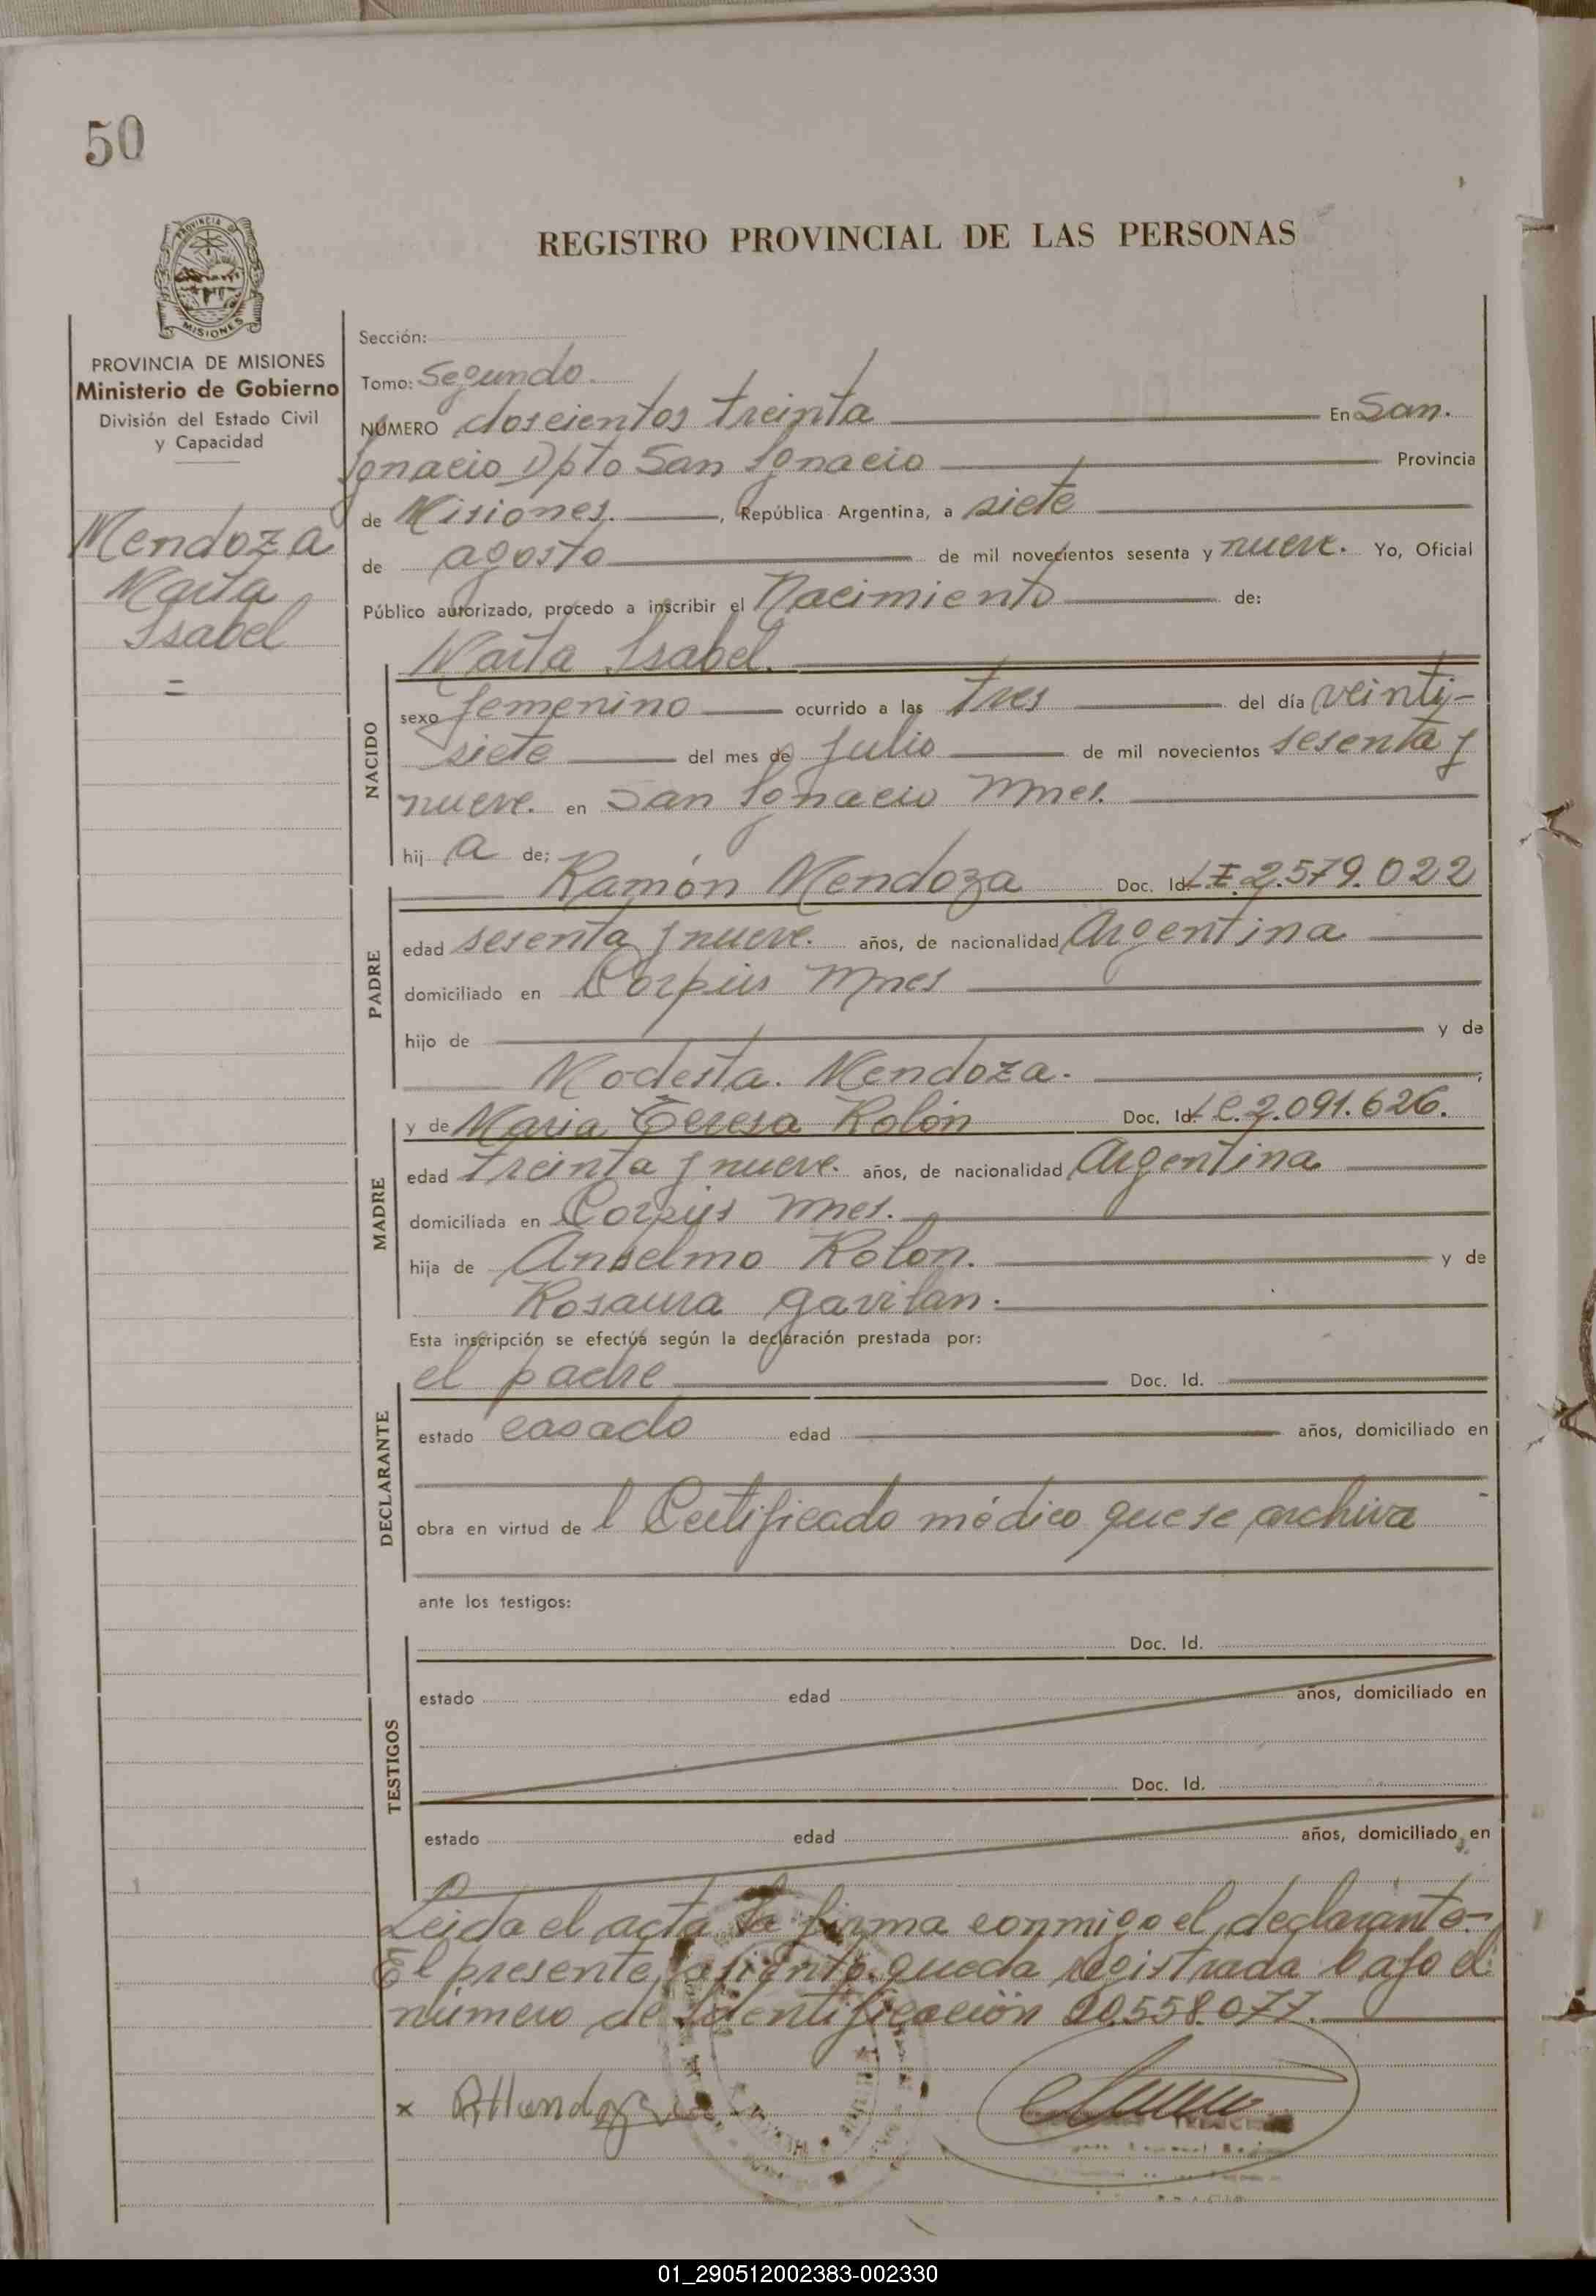 50
REGISTRO PROVINCIAL DE LAS PERSONAS
PROVINCIA
MISIONES
PROVINCIA DE MISIONES
Ministerio de Gobierno
División del Estado Civil
y Capacidad
Mendoza
Marta
Isabel
=
Sección:
Tomo: Segundo.
NÚMERO doscientos treinta En San.
Ignacio Dpto San Ignacio Provincia
de Misiones. , República Argentina, a siete
de agosto de mil novecientos sesenta y nueve. Yo, Oficial
Público autorizado, procedo a inscribir el Nacimiento de:
Marta Isabel.
NACIDO
sexo femenino ocurrido a las tres del día veinti-
siete del mes de Julio de mil novecientos sesenta y
nueve. en San Ignacio Mnes.
hij a de;
Ramón Mendoza Doc. Id. L.E. 2.579.022
PADRE
edad sesenta y nueve. años, de nacionalidad Argentina
domiciliado en Corpus Mnes
hijo de y de
Modesta. Mendoza.
y de Maria Teresa Rolón Doc. Id. L.C. 2.091.626.
MADRE
edad treinta y nueve. años, de nacionalidad Argentina
domiciliada en Corpus Mnes.
hija de Anselmo Rolon. y de
Rosaura Gavilan.
Esta inscripción se efectúa según la declaración prestada por:
el padre Doc. Id.
DECLARANTE
estado casado edad años, domiciliado en
obra en virtud de l Certificado médico que se archiva
ante los testigos:
Doc. Id.
TESTIGOS
estado edad años, domiciliado en
Doc. Id.
estado edad años, domiciliado en
Leida el acta la firma conmigo el declarante-
El presente asiento queda registrada bajo el
número de Identificación 20.558.077.
x RMendoza
01_290512002383-002330